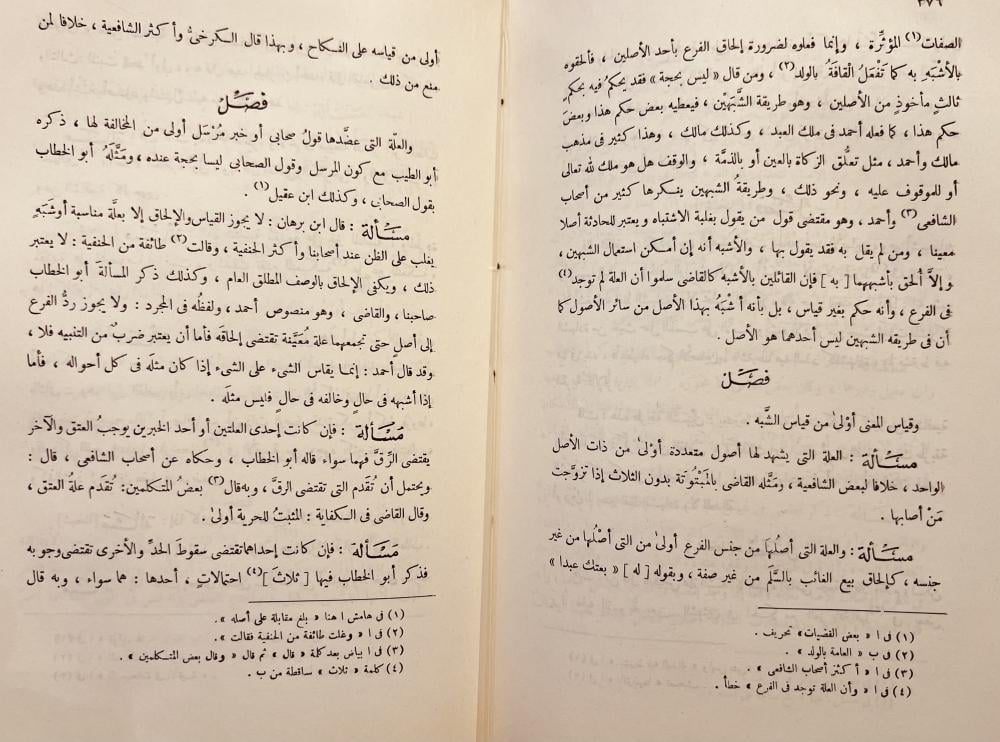 ٣٧٦
الصفات (١) المؤثِّرة ، وإنما فعلوه لضرورة إلحاق الفرع بأحد الأصلين ، فألحقوه
بالأشْبَهِ به كما تَفْعَلُ القافَةُ بالولد (٢) ، ومن قال « ليس بحجة » فقد يحكم فيه بحكم
ثالثٍ مأخوذٍ من الأصلين ، وهو طريقة الشَّبَهَيْنِ ، فيعطيه بعض حكم هذا وبعضَ
حكم هذا ، كما فعله أحمد فى ملك العبد ، وكذلك مالك ، وهذا كثير فى مذهب
مالك وأحمد ، مثل تعلُّق الزكاة بالعين أو بالذمَّة ، والوقف هل هو ملك لله تعالى
أو للموقوف عليه ، ونحو ذلك ، وطريقةُ الشبهين ينكرها كثير من أصحاب
الشافعى (٣) وأحمد ، وهو مقتضى قول من يقول بغلبة الاشتباه ويعتبر للحادثة أصلا
معينا ، ومن لم يقل به فقد يقول بها ، والأشبه أنه إن أمكن استعمال الشبهين،
وإلاَّ أُلحق بأشبههما [ به ] فإن القائلين بالأشبه كالقاضى سلموا أن العلة لم توجد (٤)
فى الفرع ، وأنه حكم بغير قياس ، بل بأنه أشْبَهُ بهذا الأصل من سائر الأصول كما
أن فى طريقه الشبهين ليس أحدهما هو الأصل .
فصَــْل
وقياس المعنى أوْلىٰ من قياس الشَّبه .
مسَــألة : العلة التى يشهد لها أصول متعددة أوْلىٰ من ذات الأصل
الواحد ، خلافا لبعض الشافعية ، ومَثّله القاضى بالمَبْتُوتَة بدون الثلاث إذا تزوَّجت
مَنْ أصابها .
مسَــألة : والعلة التى أصلُها من جنس الفرع أولىٰ من التى أصْلُها من غير
جنسه ، كإلحاق بيع الغائب بالسَّلَمَ من غير صفة ، وبقوله [ له ] « بعتك عبدا »
(١) فى ا « بعض القضيات » تحريف .
(٢) فى ب « العامة بالولد » .
(٣) فى ا « أكثر أصحاب الشافعى » .
(٤) فى ا « وأن العلة توجد فى الفرع » خطأ .
أولى من قياسه على النكاح ، وبهذا قال الكرخىُّ وأكثر الشافعية ، خلافا لمن
منع من ذلك .
فصَــْل
والعلّة التى عضَّدها قولُ صحابى أو خبر مُرْسَل أولى من المخالفة لها ، ذكره
أبو الطيب مع كون المرسل وقول الصحابى ليسا بحجة عنده ، ومَثَّلَهُ أبو الخطاب
بقول الصحابى ، وكذلك ابن عقيل (١) .
مسَــألة : قال ابن برهان : لا يجوز القياس والإلحاق إلا بعلَّة مناسبة أو شَبَهٍ
يغلب على الظن عند أصحابنا وأكثر الحنفية ، وقالت (٢) طائفة من الحنفية : لا يعتبر
ذلك ، ويكفى الإلحاق بالوصف المطلق العام ، وكذلك ذكر المسألة أبو الخطاب
صاحبنا ، والقاضى ، وهو منصوص أحمد ، ولفظُه فى المجرد : ولا يجوز ردُّ الفرع
إلى أصلٍ حتى تجمعهما علة مُعَيَّنة تقتضى إلحاقَه فأما أن يعتبر ضربٌ من التنبيه فلا ،
وقد قال أحمد : إنما يقاس الشىء على الشىء إذا كان مثلَه فى كل أحواله ، فأما
إذا أشبهه فى حالٍ وخالفه فى حالٍ فليس مثلَه .
مسَــألة : فإن كانت إحدى العلتين أو أحد الخبرين يوجبُ العتق والآخر
يقتضى الرِّقَّ فهما سواء قاله أبو الخطاب ، وحكاه عن أصحاب الشافعى ، قال :
ويحتمل أن تُقَدم التى تقتضى الرقَّ ، وبه قال (٣) بعضُ المتكلمين: تُقدم علةُ العتق ،
وقال القاضى فى الكفاية : المثبتُ للحرية أولىٰ .
مسَــألة : فإن كانت إحداهما تقتضى سقوطَ الحدِّ والأخرى تقتضى وجوبه
فذكر أبو الخطاب فيها [ ثلاثَ ] (٤) احتمالاتٍ ، أحدها : هما سواء ، وبه قال
(١) فى هامش ا هنا « بلغ مقابلة على أصله » .
(٢) فى ا « وغلت طائفة من الحنفية فقالت » .
(٣) فى ا بياض بعد كلمة « قال » ثم قال « وقال بعض المتكلمين » .
(٤) كلمة « ثلاث » ساقطة من ب .